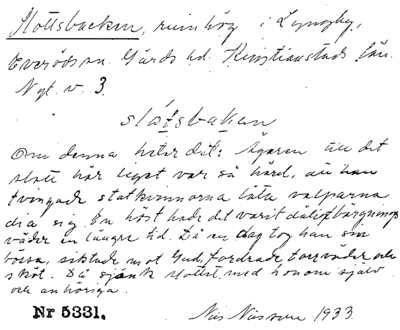 Slottsbacken, ruinhög i Lyngby,
Everöds sn. Gärds hd. Kristianstads län.
Nyt. v. 3.
slåtsbakan
Om denna heter det: Ägaren till det
slott här legat var så hård, att han
tvingade statkvinnorna låta valparna
dia sig. En höst hade det varit dåligt bärgnings
väder en längre tid. Då en dag tog han sin
bössa, siktade mot Gud, fordrade torrväder och
sköt. Då sjönk slottet med honom själv
och anhöriga.
Nr 5331. Nils Nilsson 1933.